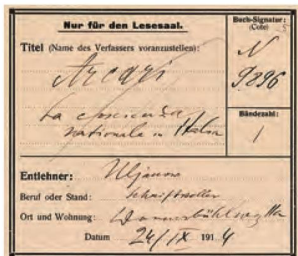 Nur für den Lesesaal.
Buch-Signatur:
(Cote)
Titel (Name des Verfassers voranzustellen):
N
9896
Arcari
La coscienza
nationale in Italia
Bändezahl:
1
Entlehner: Uljanow
Beruf oder Stand: Schriftsteller
Ort und Wohnung:
Datum 24/IX 1914